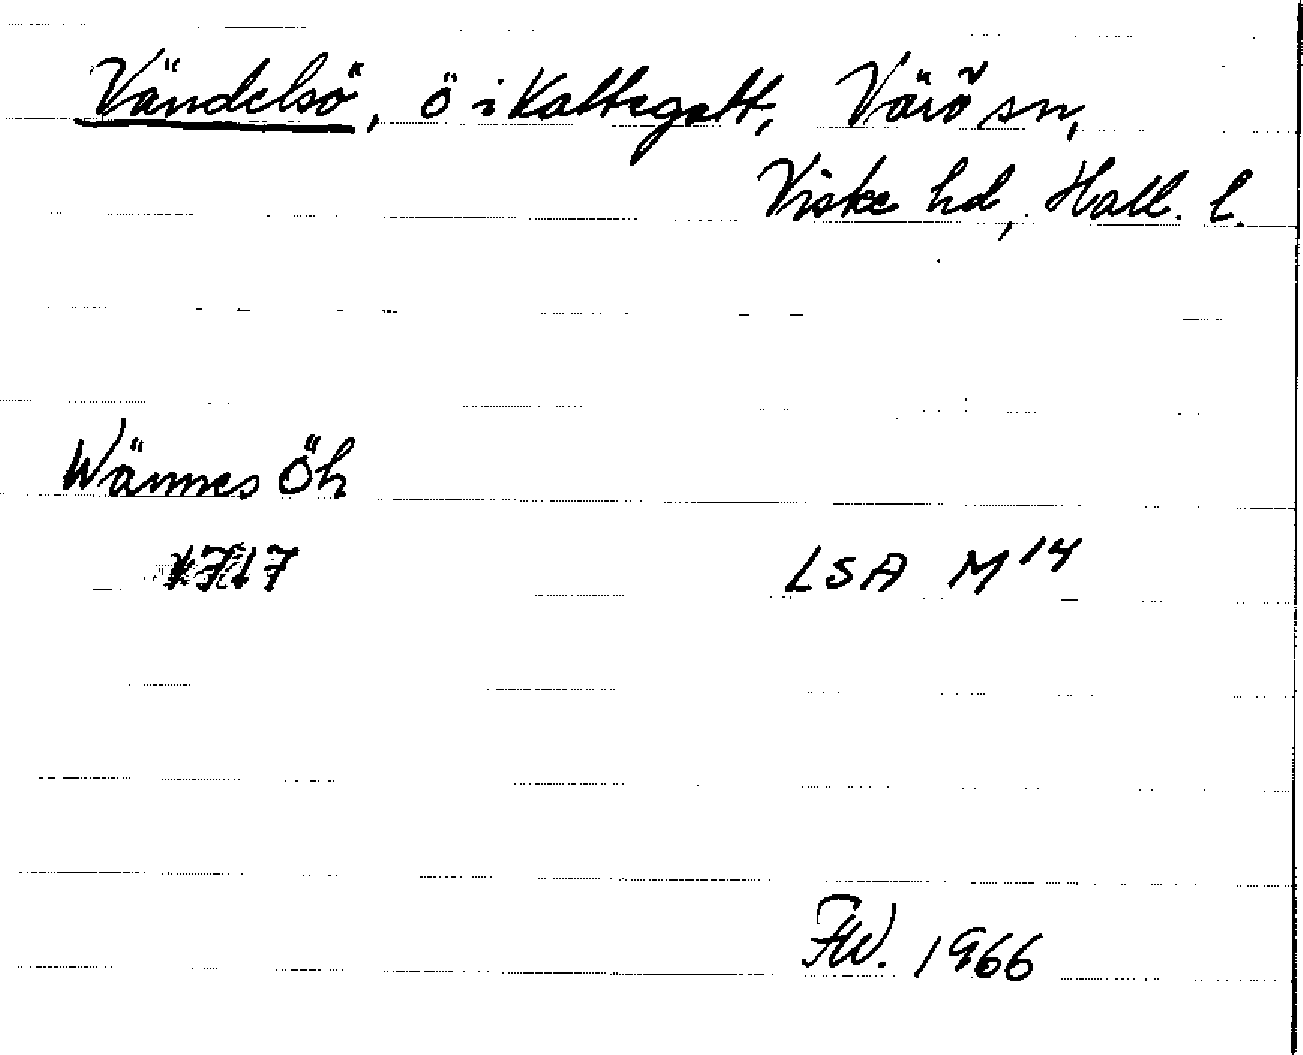 Vändelsö, ö i Kattegatt, Värö sn,
Viske hd, Hall. l.
Wännes Öh
LSA M 14
FW. 1966